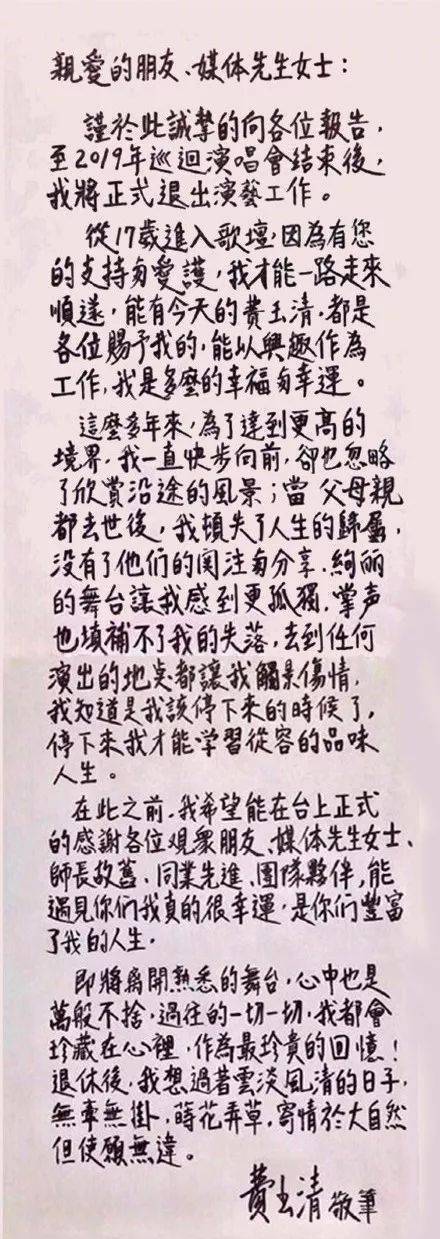 親愛的朋友、媒体先生女士：
謹於此誠摯的向各位報告，
至2019年巡迴演唱會結束後，
我將正式退出演藝工作。
從17歲進入歌壇，因為有您
的支持与愛護，我才能一路走來
順遂，能有今天的費玉清，都是
各位賜予我的，能以興趣作為
工作，我是多麼的幸福与幸運。
這麼多年來，為了達到更高的
境界，我一直快步向前，卻也忽略
了欣賞沿途的風景；當父母親
都去世後，我頓失了人生的歸屬，
没有了他們的関注与分享，絢丽
的舞台讓我感到更孤獨，掌声
也填補不了我的失落，去到任何
演出的地点都讓我觸景傷情，
我知道是我該停下來的時候了，
停下來我才能学習從容的品味
人生。
在此之前，我希望能在台上正式
的感謝各位观衆朋友、媒体先生女士、
師長故舊、同業先進、團隊夥伴，能
遇見你們我真的很幸運，是你們豐富
了我的人生。
即將离開熟悉的舞台，心中也是
萬般不捨，過往的一切一切，我都會
珍藏在心裡，作為最珍貴的回憶！
退休後，我想過着雲淡風清的日子，
無牽無掛，蒔花弄草，寄情於大自然
但使願無違。
費玉清 敬筆